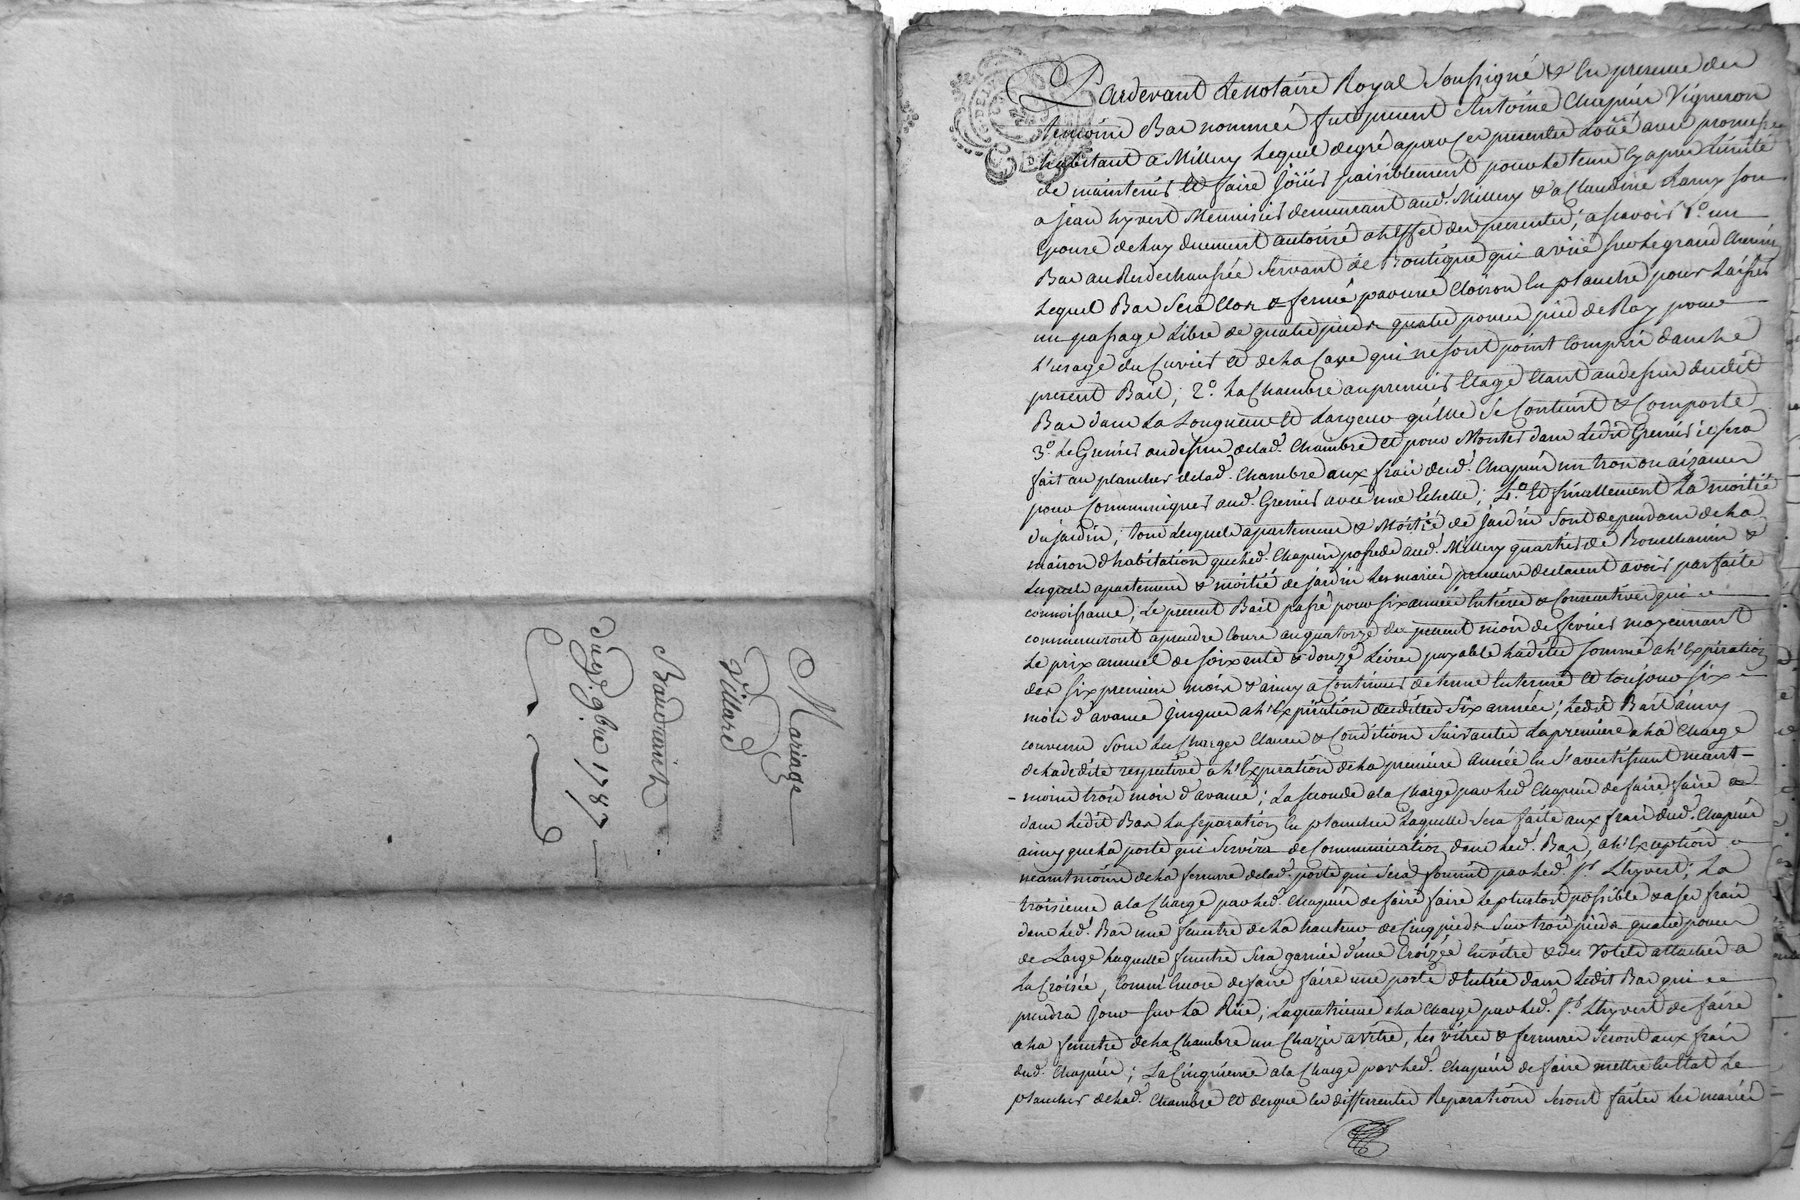 Mariage
Villard
Baudrand
du 9bre 1787
Pardevant Le notaire Royal Soussigné & En presence des
temoins Bas nommés fut present Antoine Chapuis Vigneron
habitant a Millery Lequel degré a par ces presentes Loüé avec promesse
de maintenir Et faire Joüir paisiblement pour Le tems Cy apres Limité
a jean Lyvert Menuisier demeurant aud. Millery & a Claudine son
Epouse de Luy duement autorisé a L'Effet des presentes, a scavoir 1.o un
Bas au Rez de chaussée Servant de Boutique qui a vüe sur Le grand Chemin
Lequel Bas Sera Clos & fermé par une Cloison En planche pour Laisser
un passage Libre de quatre pieds quatre pouces pied de Roy pour
L'usage du Cuvier Et de La Cave qui ne sont point Compris dans Le
present Bail; 2.o La Chambre au premier Etage Etant au dessus dudit
Bas dans La Longueur Et Largeur qu'Elle Se Contient & Comporte
3.o Le Grenier au dessus de lad. Chambre Et pour Monter dans Ledit Grenier il sera
fait au plancher de lad. Chambre aux frais dud. Chapuis un trou ou aizances
pour Communiquer aud. Grenier avec une Echelle; 4.o Et finallement La moitié
du jardin; tous Lesquels apartemens & Moitié de jardin Sont dependans de La
maison d'habitation que Led. Chapuis possede aud. Millery quartier de &
Lesquels apartemens & moitié de jardin Les mariés preneurs declarent avoir parfaite
connoissance; Le present Bail passé pour six années Entieres & Consecutives qui
commenceront a prendre Cours au quatorze du present mois de fevrier moyennant
Le prix annuel de soixante & douze Livres payable Ladite somme a L'Expiration
des six premiers mois & ainsy a Continuer de terme En terme Et toujours six
mois d'avance jusques a L'Expiration desdites Six années; Ledit Bail ainsy
convenu Sous Les Charges Clauses & Conditions Suivantes La premiere a La Charge
de La dedite respective a L'Expiration de La premiere année En S'avertissant neant-
-moins trois mois d'avance; La seconde a La Charge par Led. Chapuis de faire faire
dans Ledit Bas La separation En planches Laquelle Sera faite aux frais dud. Chapuis
ainsy que La porte qui Servira de Communication dans Led. Bas, a L'Exception
neantmoins de La ferrure de lad. porte qui Sera fournit par Led. Sr. Lhyvert; La
troisieme a La Charge par Led. Chapuis de faire faire Le plustot possible & a ses frais
dans Led. Bas une fenetre de La hauteur de Cinq pieds Sur trois pieds quatre pouces
de Large Laquelle fenetre Sera garnie d'une Croizée En vitre & des Volets attachés a
La Croisée, Comme Encore de faire faire une porte d'Entrée dans Ledit Bas qui
prendra Jour sur La Rüe; La quatrieme a La Charge par Led. Sr. Lhyvert de faire
a La fenetre de La Chambre un Chazis a vitre, Les vitres & ferrures Seront aux frais
dud. Chapuis; La Cinquieme a La Charge par Led. Chapuis de faire mettre En Etat Le
plancher de Lad. Chambre Et desque Les differentes Reparations Seront faites Les mariés